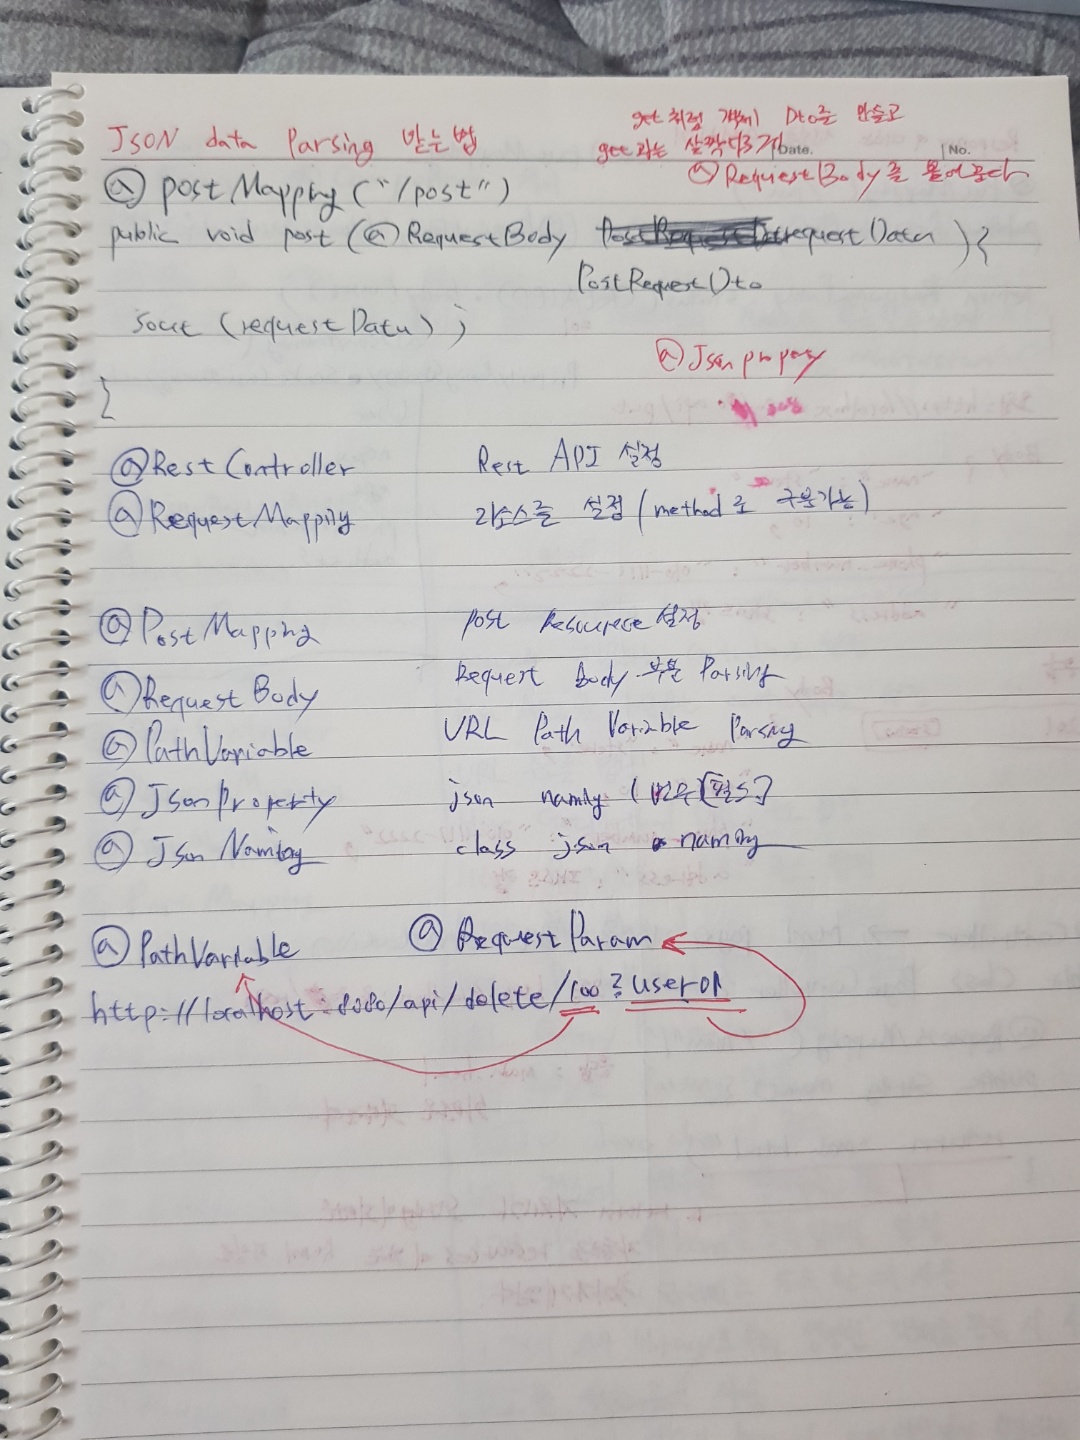 JSON data Parsing 받는법
get 처럼 객체 Dto를 만들고
get과는 살짝다르게
Date.
No.
@RequestBody를 붙여준다
@postMapping("/post")
public void post (@RequestBody requestData ){
PostRequestDto
sout (requestData);
@Json propety
}
@RestController Rest API 설정
@RequestMapping 리소스를 설정 (method로 구분가능)
@PostMapping post Resourece 설정
@RequestBody Request Body 부분 Parsing
@PathVariable URL Path Variable Parsing
@JsonProperty json naming
@JsonNaming class json naming
@PathVariable @RequestParam
http://localhost:8080/api/delete/100?user01